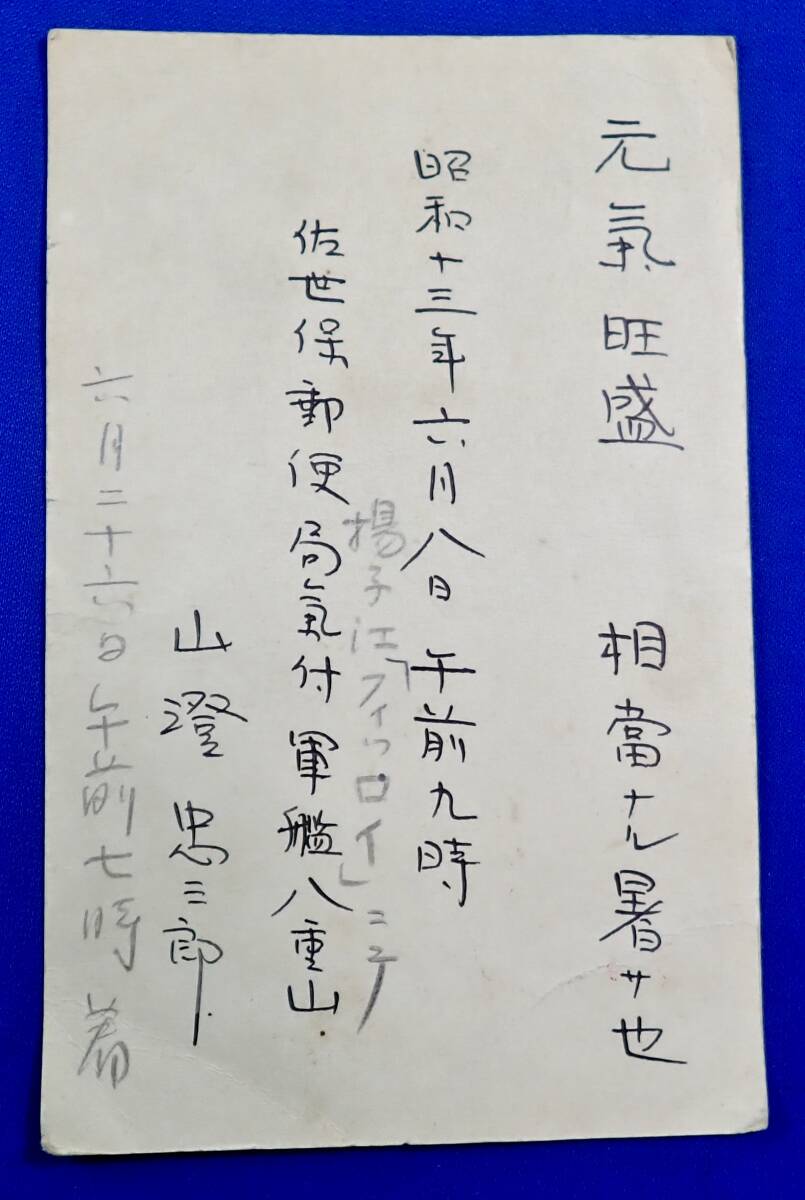 元氣旺盛 相當ナル暑サ也
昭和十三年六月八日午前九時
揚子江「フィッロイ」ニテ
佐世保郵便局氣付軍艦八重山
山澄忠三郎
六月二十六日午前七時着